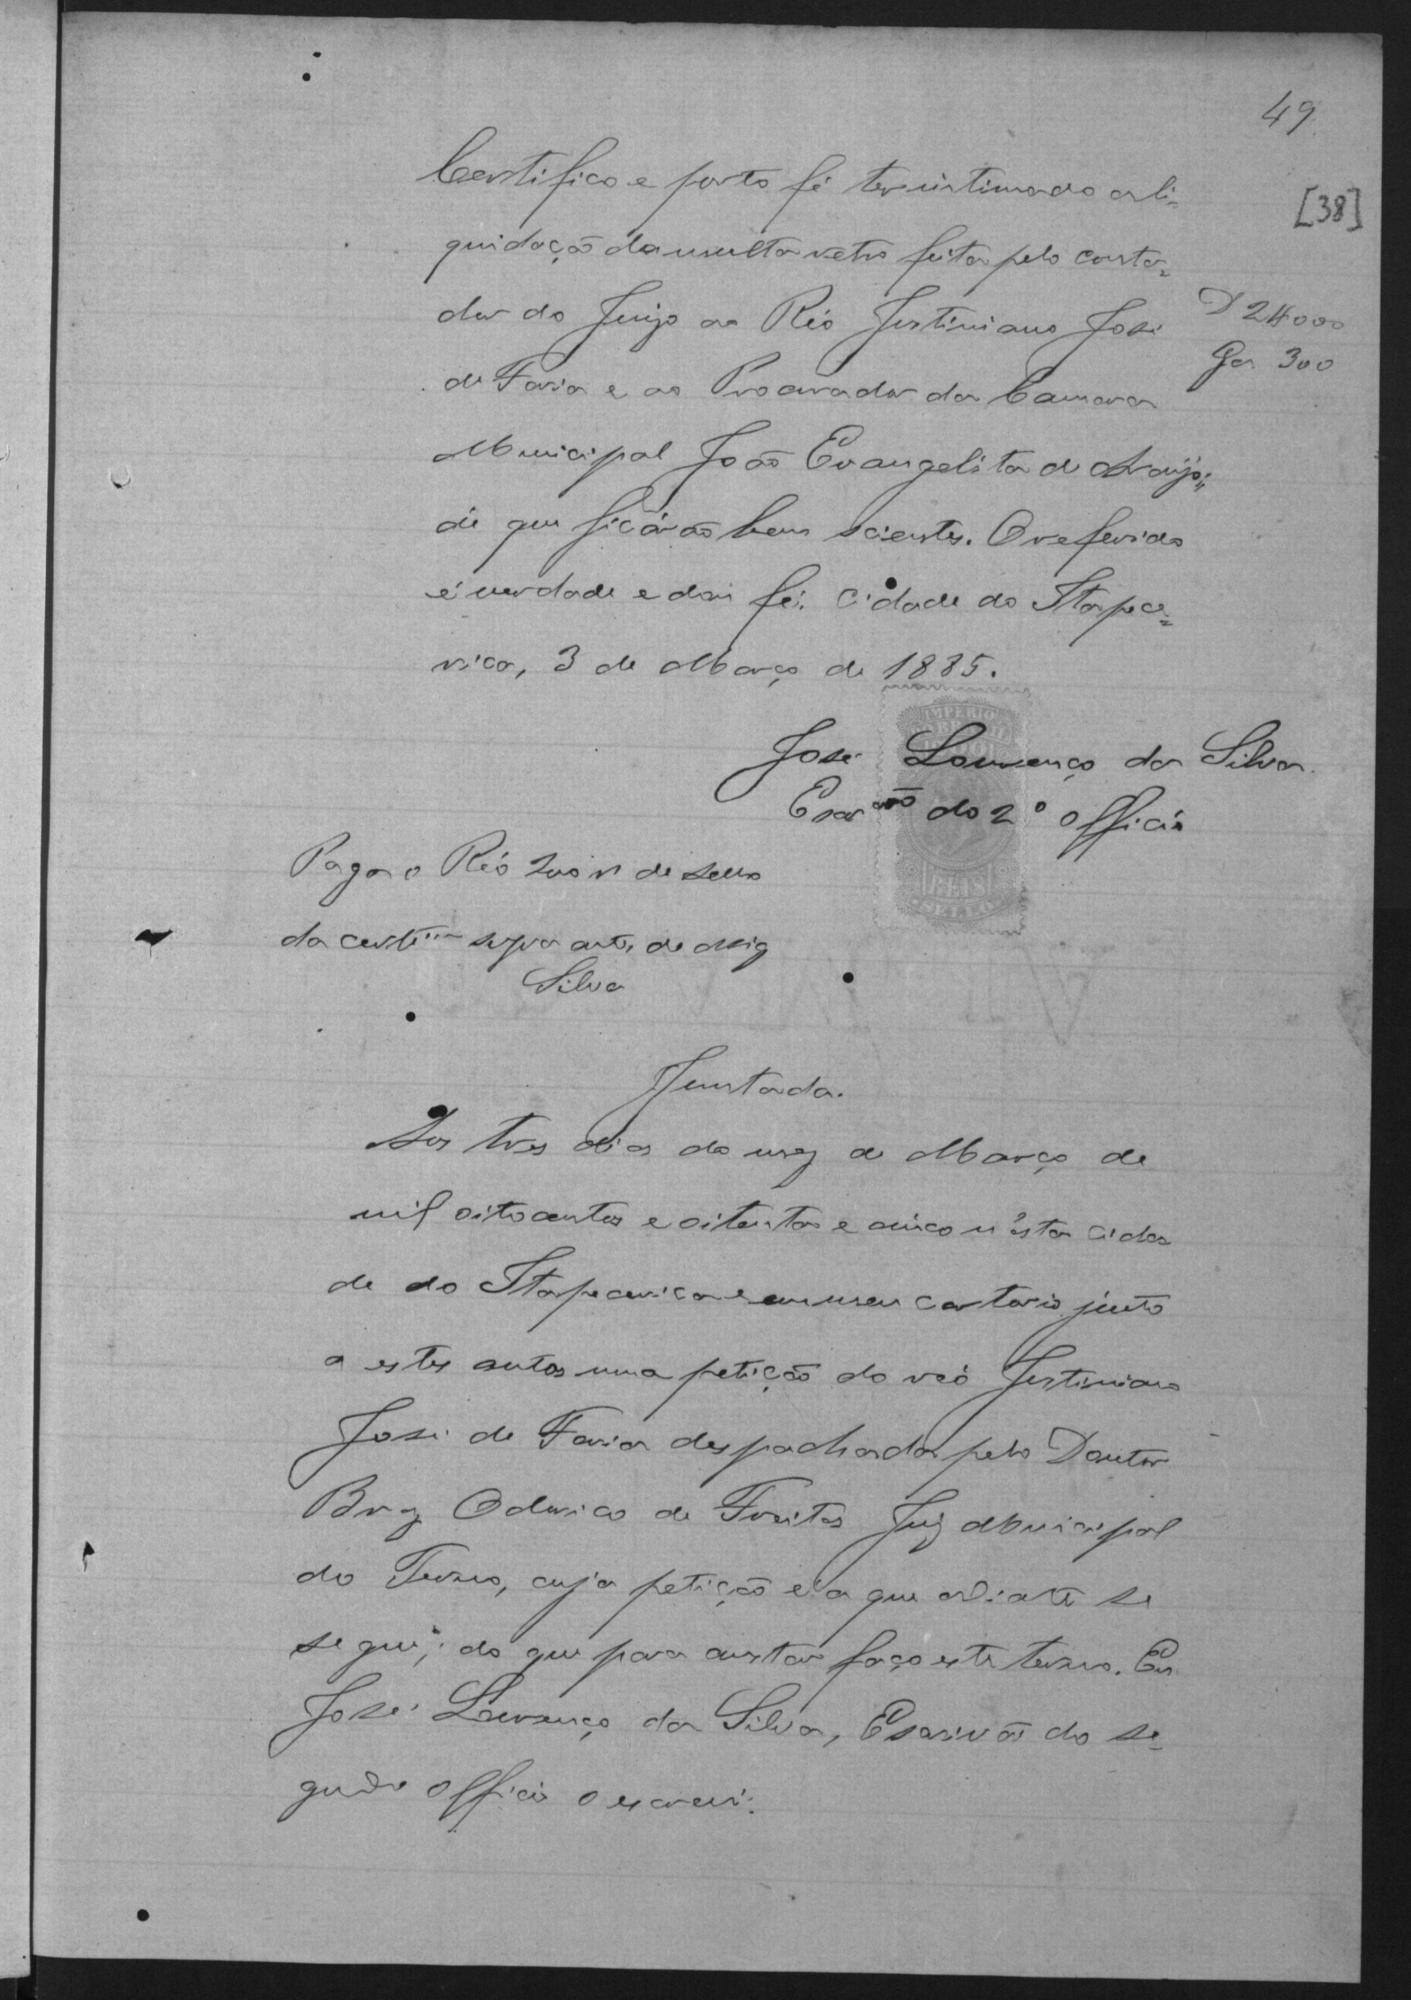 49
[38]
Certifico e porto fé ter intimado a li-
quidação da multa retro feita pelo conta-
dor do Juizo ao Réo Justiniano José
de Faria e ao Procurador da Camara
Municipal João Evangelista de Araujo;
de que ficárão bem scientes. O referido
é verdade e dou fé. Cidade do Itapece-
rica, 3 de Março de 1885.
D 24000
Ga 300
José Lourenço da Silva
Escrᵃᵒ do 2º officio
IMPERIO
REIS
SELLO
Paga o Réo 200 rs de sello
da certᵃᵐ supra antes de assig
Silva
Juntada.
Aos tres dias do mez de Março de
mil oitocentos e oitenta e cinco n'esta cida
de do Itapecerica e em meu cartorio junto
a estes autos uma petição do reó Justiniano
José de Faria despachada pelo Doutor
Braz Odorico de Freitas Juiz Municipal
do Termo, cuja petição é a que adiante se
segue; do que para constar faço este termo. Eu
José Lourenço da Silva, Escrivão do se-
gundo officio o escrevi.